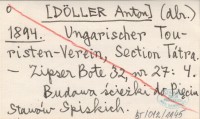 [DÖLLER Anton] (ab.)
1894. Ungarischer Tou-
risten-Verein, Section Tátra.
– Zipser Bote 32, nr 27: 4.
Budowa ścieżki do Pięciu
Stawów Spiskich.